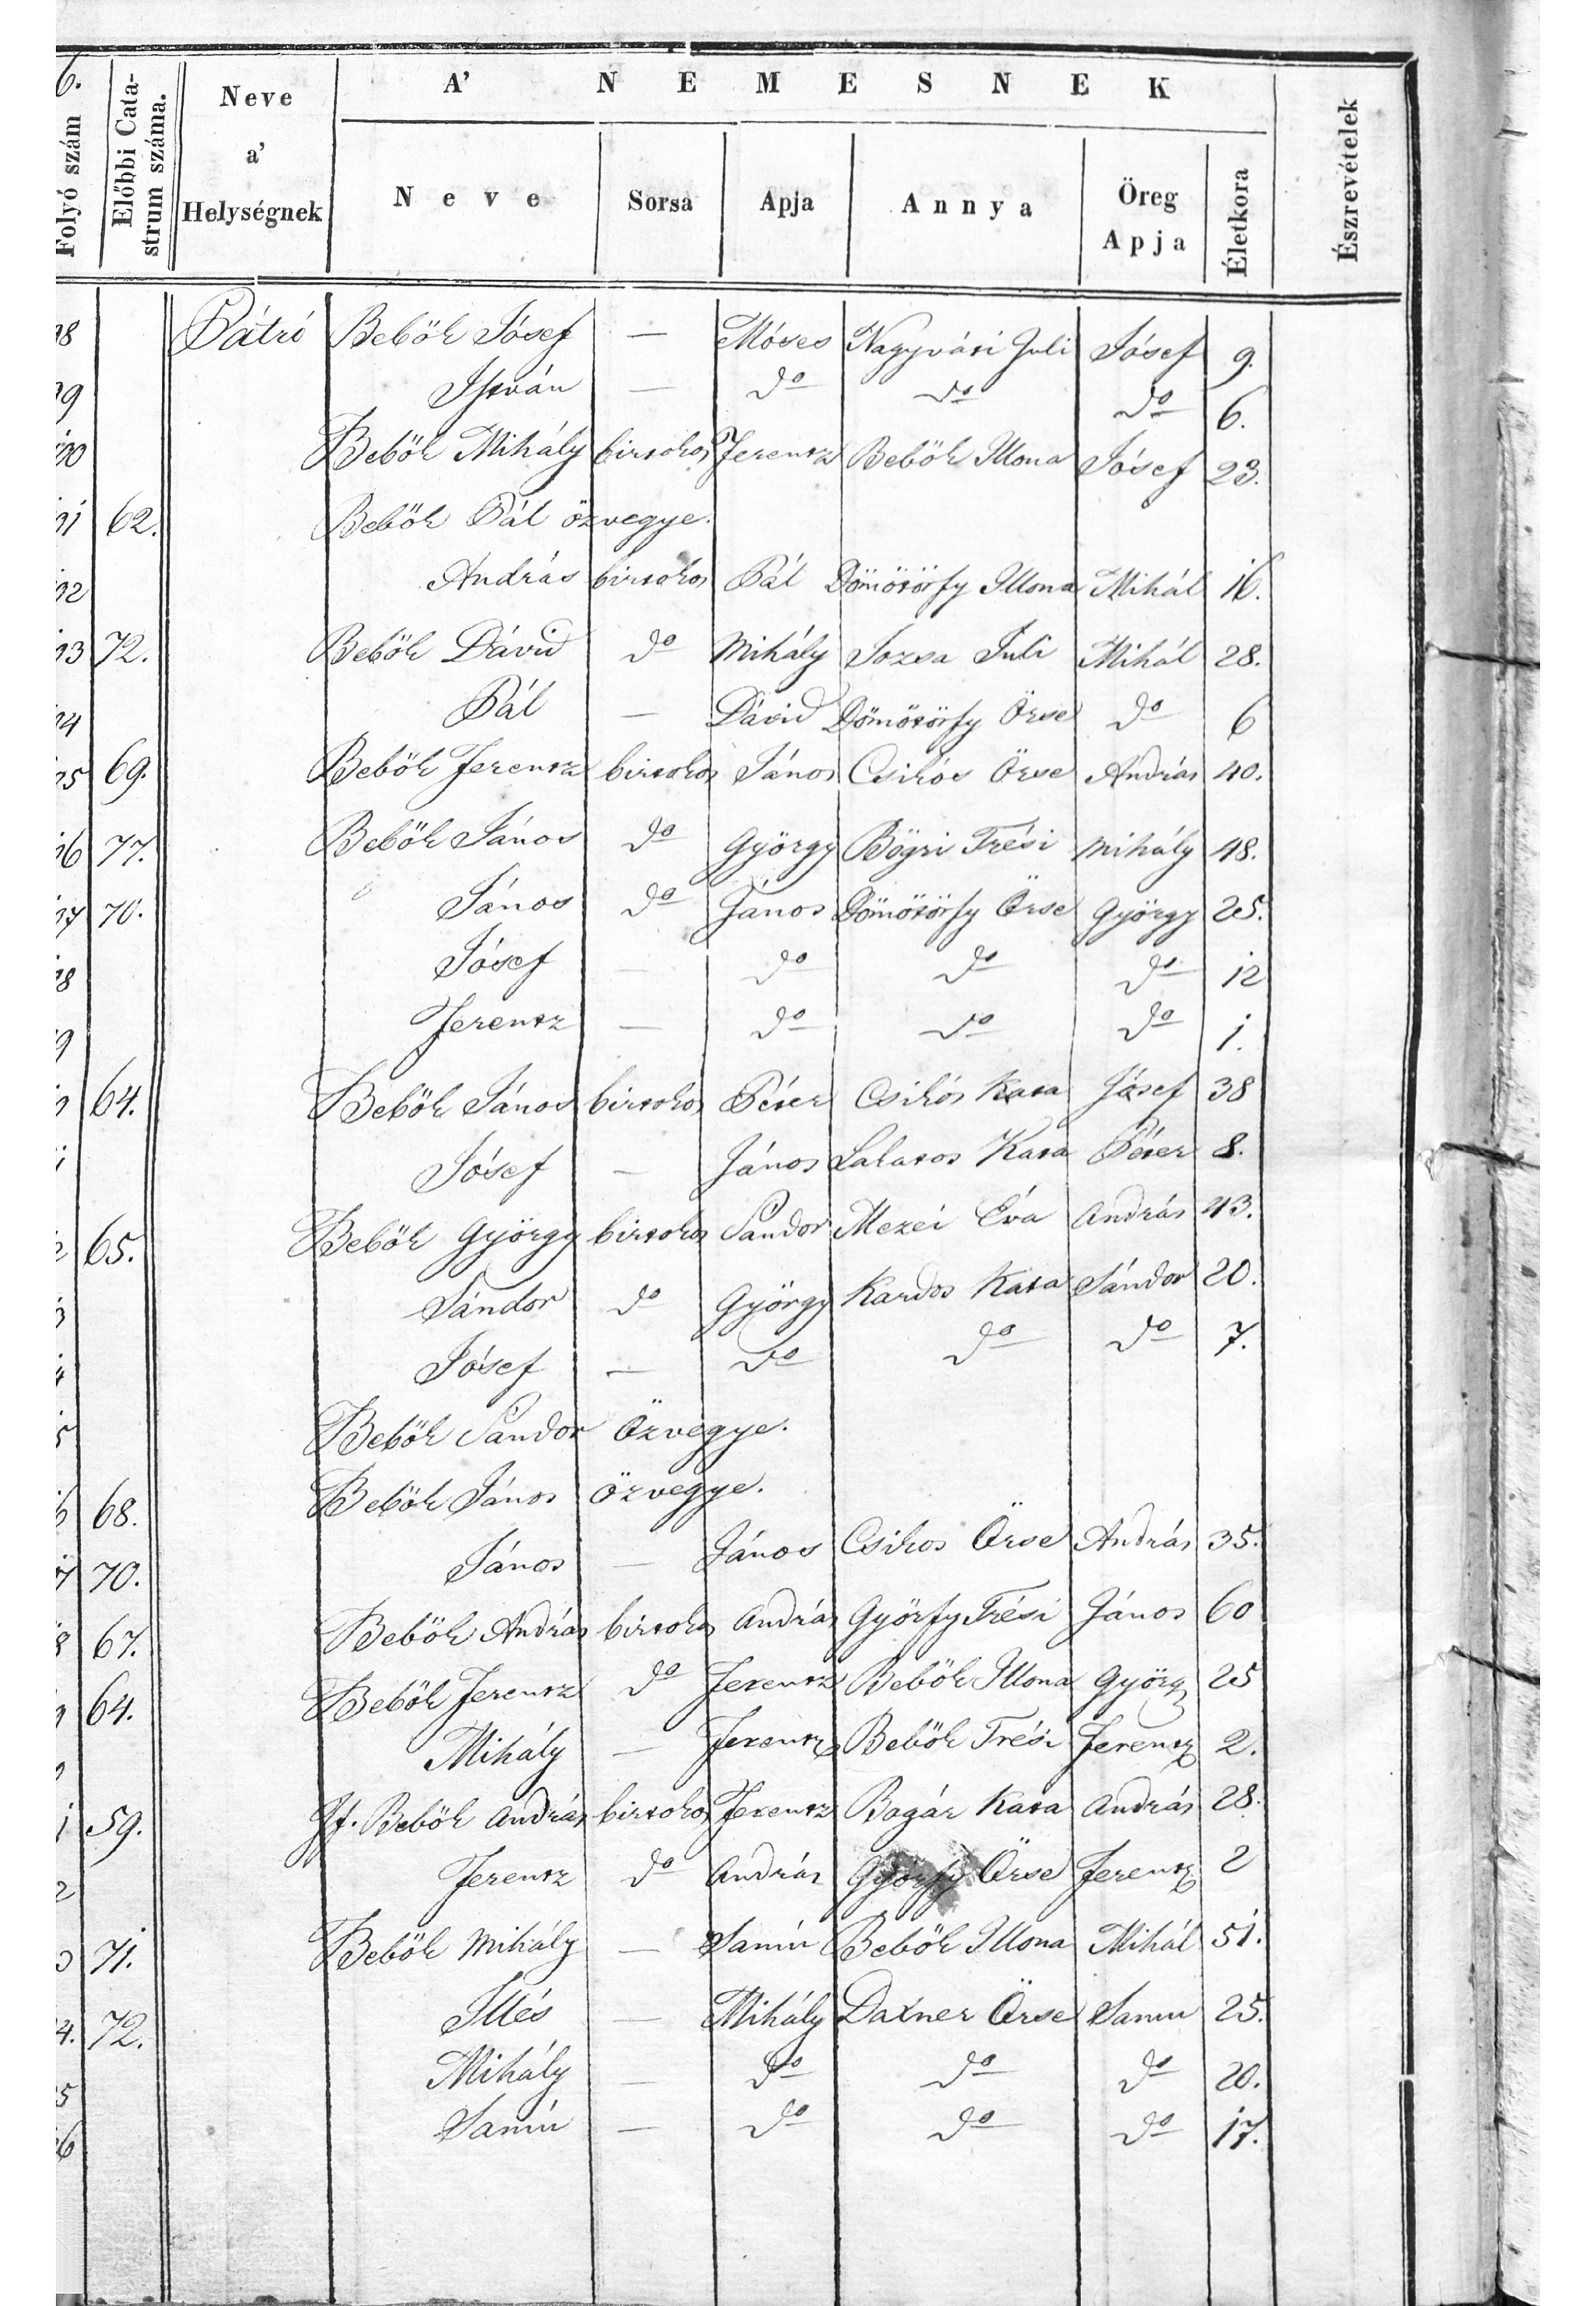 6.
A' NEMESNEK
Folyó szám
Előbbi Cata-
strum száma.
Neve
a'
Helységnek
Neve
Sorsa
Apja
Annya
Öreg
Apja
Életkora
Észrevételek
98 Pátró Bebök Jósef — Móses Nagyvári Juli Jósef 9.
99 István — do do do 6.
Bebök Mihály birtokos Ferentz Bebök Illona Jósef 23.
62. Bebök Pál özvegye.
András birtokos Pál Dömötörfy Illona Mihál 16.
72. Bebök Dávid do Mihály Jozsa Juli Mihál 28.
Pál — Dávid Dömötörfy Örse do 6
69. Bebök Ferentz birtokos János Csikós Örse András 40.
77. Bebök János do György Bögri Trési Mihály 48.
70. János do János Dömötörfy Örse György 25.
Jósef — do do do 12
Ferentz — do do do 1.
64. Bebök János birtokos Péter Csikós Kata Jósef 38
Jósef — János Lakatos Kata Péter 8.
65. Bebök György birtokos Sándor Mezei Éva András 43.
Sándor do György Kardos Kata Sándor 20.
Jósef — do do do 7.
Bebök Sándor Özvegye.
68. Bebök János özvegye.
70. János — János Csikos Örse András 35.
67. Bebök András birtokos András Györfy Trési János 60
64. Bebök Ferentz do Ferentz Bebök Illona György 25
Mihály — Ferentz Bebök Trési Ferentz 2.
59. If. Bebök András birtokos Ferentz Bagár Kata András 28.
Ferentz do András Györfy Örse Ferentz 2
71. Bebök Mihály — Samu Bebök Illona Mihál 51.
72. Illés — Mihály Daxner Örse Samu 25.
Mihály — do do do 20.
Samu — do do do 17.